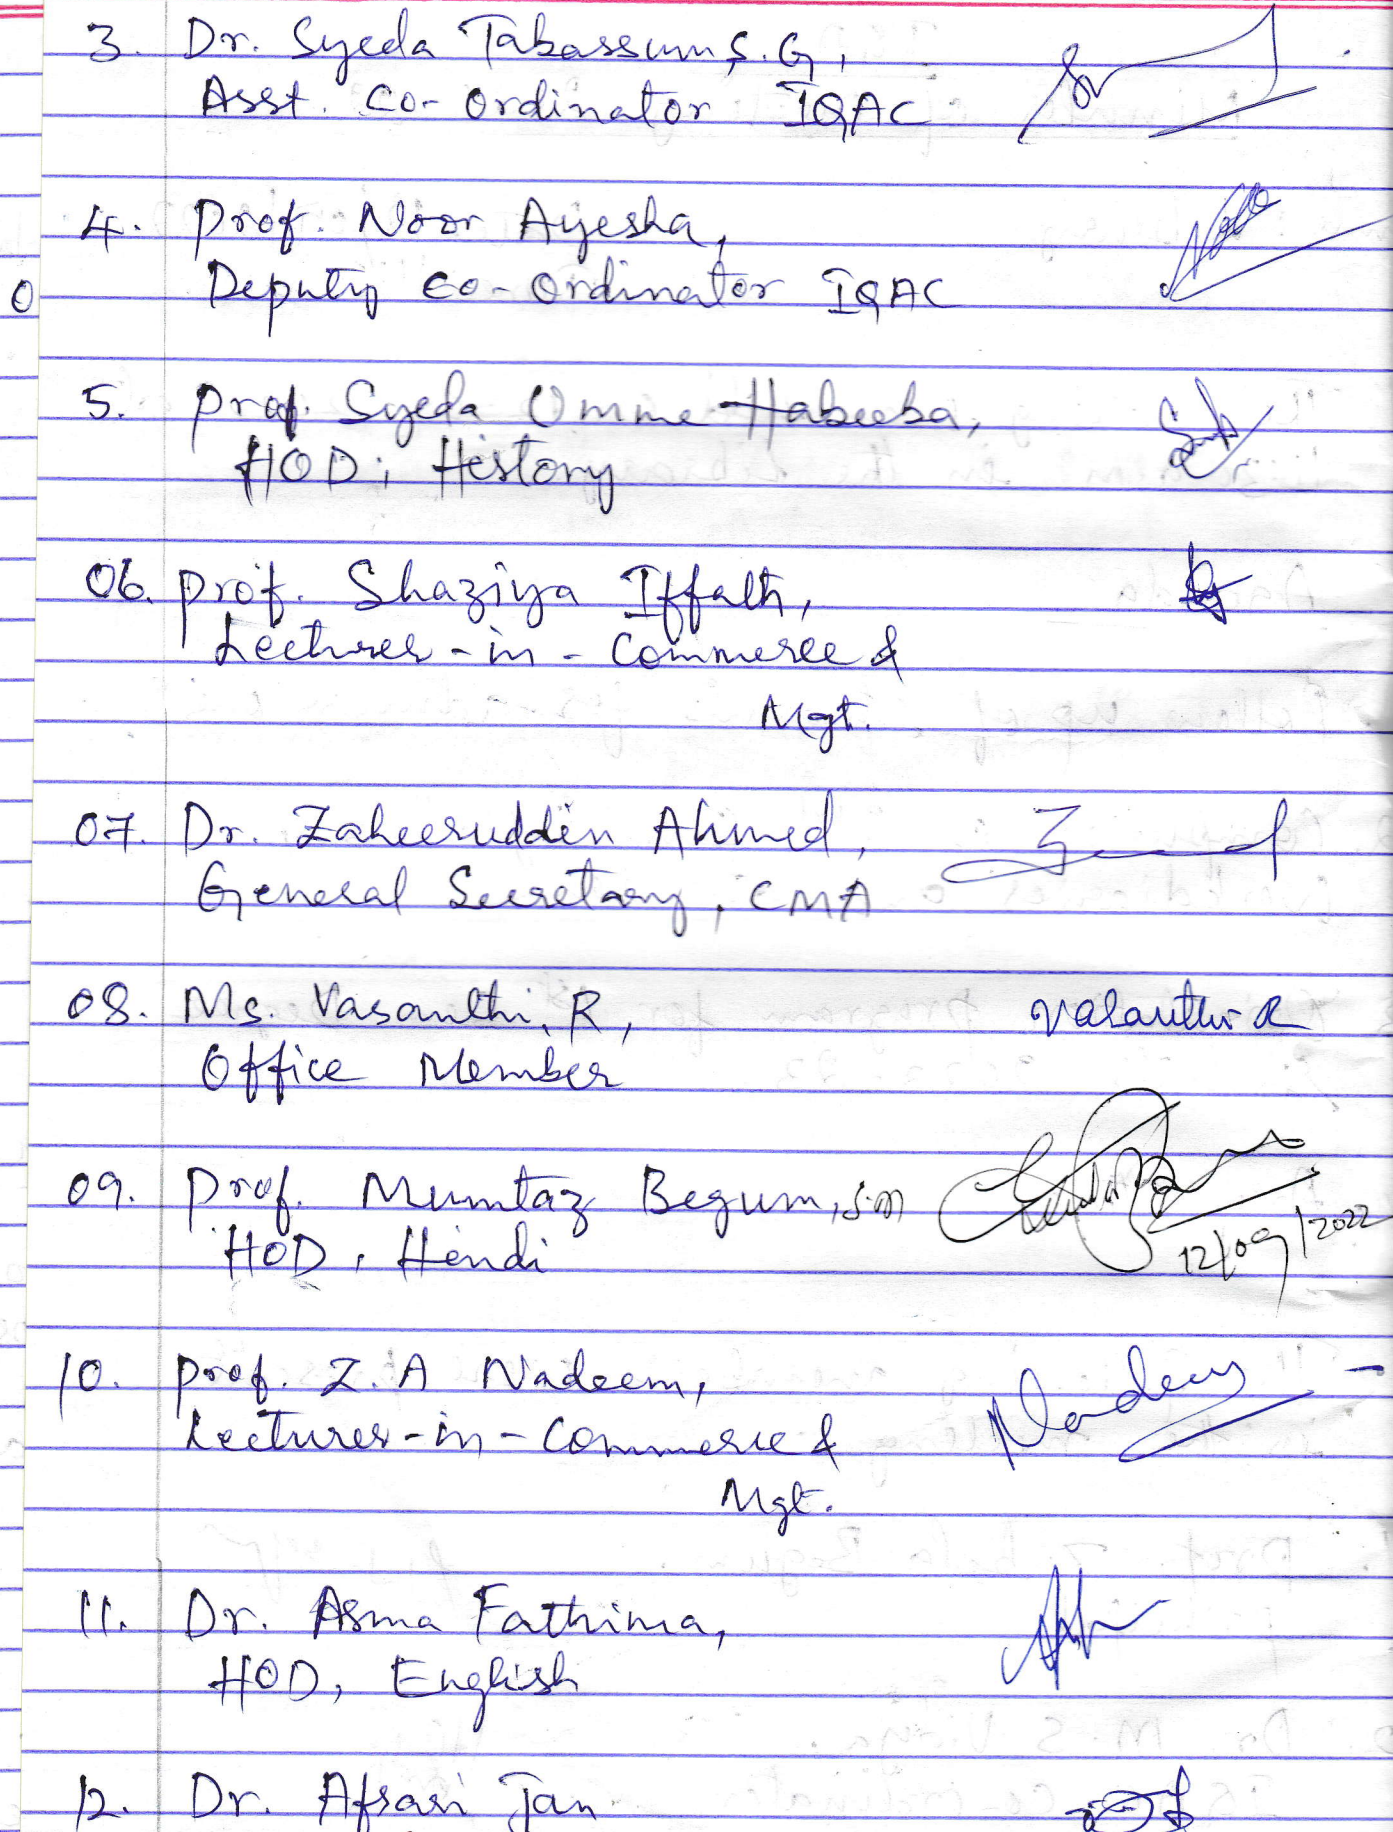 3. Dr. Syeda Tabassum S.G,
Asst. Co-ordinator IQAC
4. Prof. Noor Ayesha,
Deputy Co-ordinator IQAC
0
5. Prof. Syeda Umme Habeeba,
HOD, History
06. Prof. Shaziya Iffath,
Lecturer-in-Commerce &
Mgt.
07. Dr. Zaheeruddin Ahmed,
General Secretary, CMA
08. Ms. Vasanthi. R, Vasanthi R
Office Member
09. Prof. Mumtaz Begum, S.M
HOD, Hindi 12/09/2022
10. Prof. Z.A Nadeem, Nadeem
Lecturer-in-Commerce &
Mgt.
11. Dr. Asma Fathima,
HOD, English
12. Dr. Afsari Jan